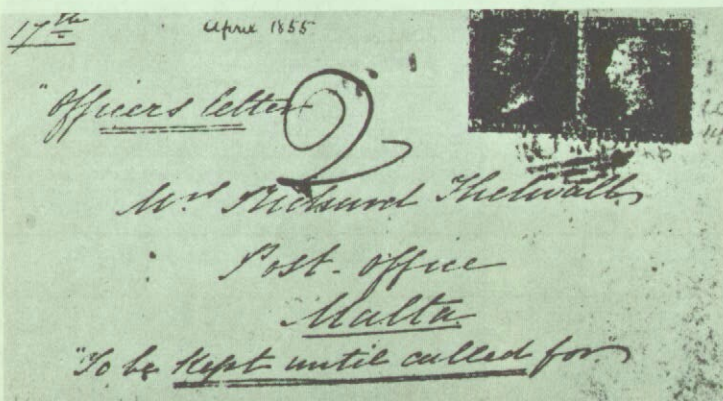 17th
April 1855
"Officers letter
2
Mrs Richard Thelwall
Post-Office
Malta
"To be Kept until called for"